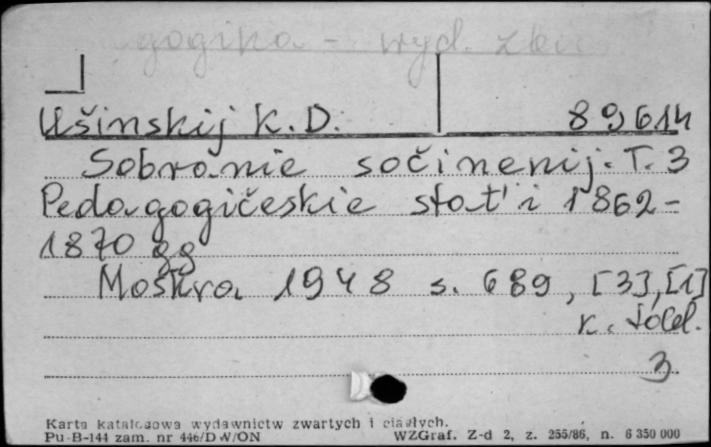 gogika - wyd. zbi
Ušinskij K.D. 89614
Sobranie sočinenij. T. 3
Pedagogičeskie stat'i 1862-
1870 gg
Moskva 1948 s. 689, [3], [1]
k. tabl.
3
Karta katalogowa wydawnictw zwartych i ciągłych.
Pu-B-144 zam. nr 446/DW/ON WZGraf. Z-d 2, z. 255/86, n. 6 350 000